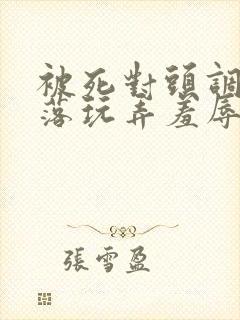 被死對頭調
落玩弄羞辱
張雪盈